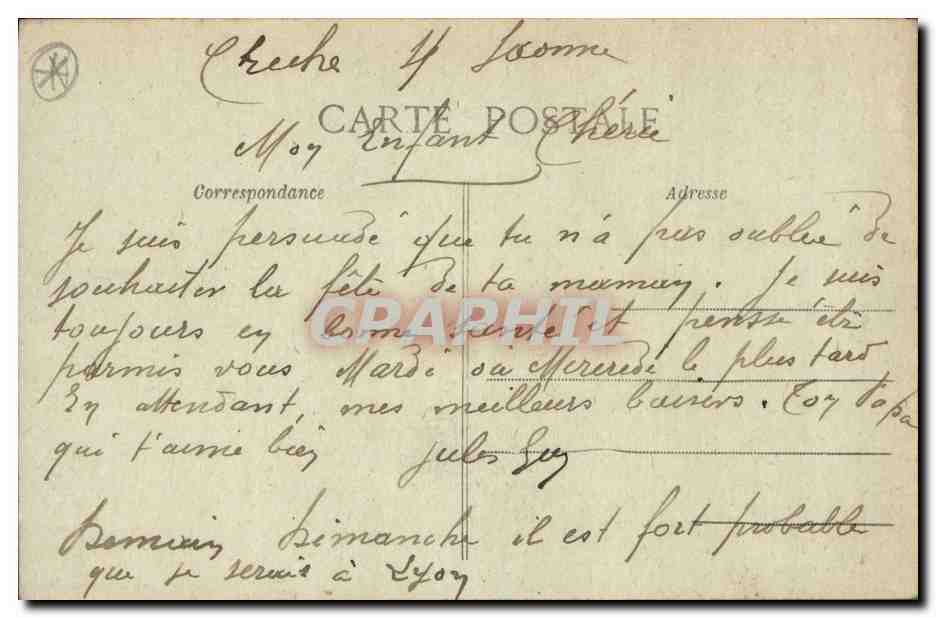 Creche S/ Saonne
CARTE POSTALE
Mon Enfant Chérie
Correspondance
Adresse
Je suis persuadé que tu n'a pas oublié de
souhaiter la fête de ta maman. Je suis
toujours en bonne santé et pensse être
parmis vous Mardi ou Mercredi le plus tard
En attendant, mes meilleurs baisers. Ton Papa
qui t'aime bien Jules
CPARPHIL
Demain Dimanche il est fort probable
que je serais à Lyon